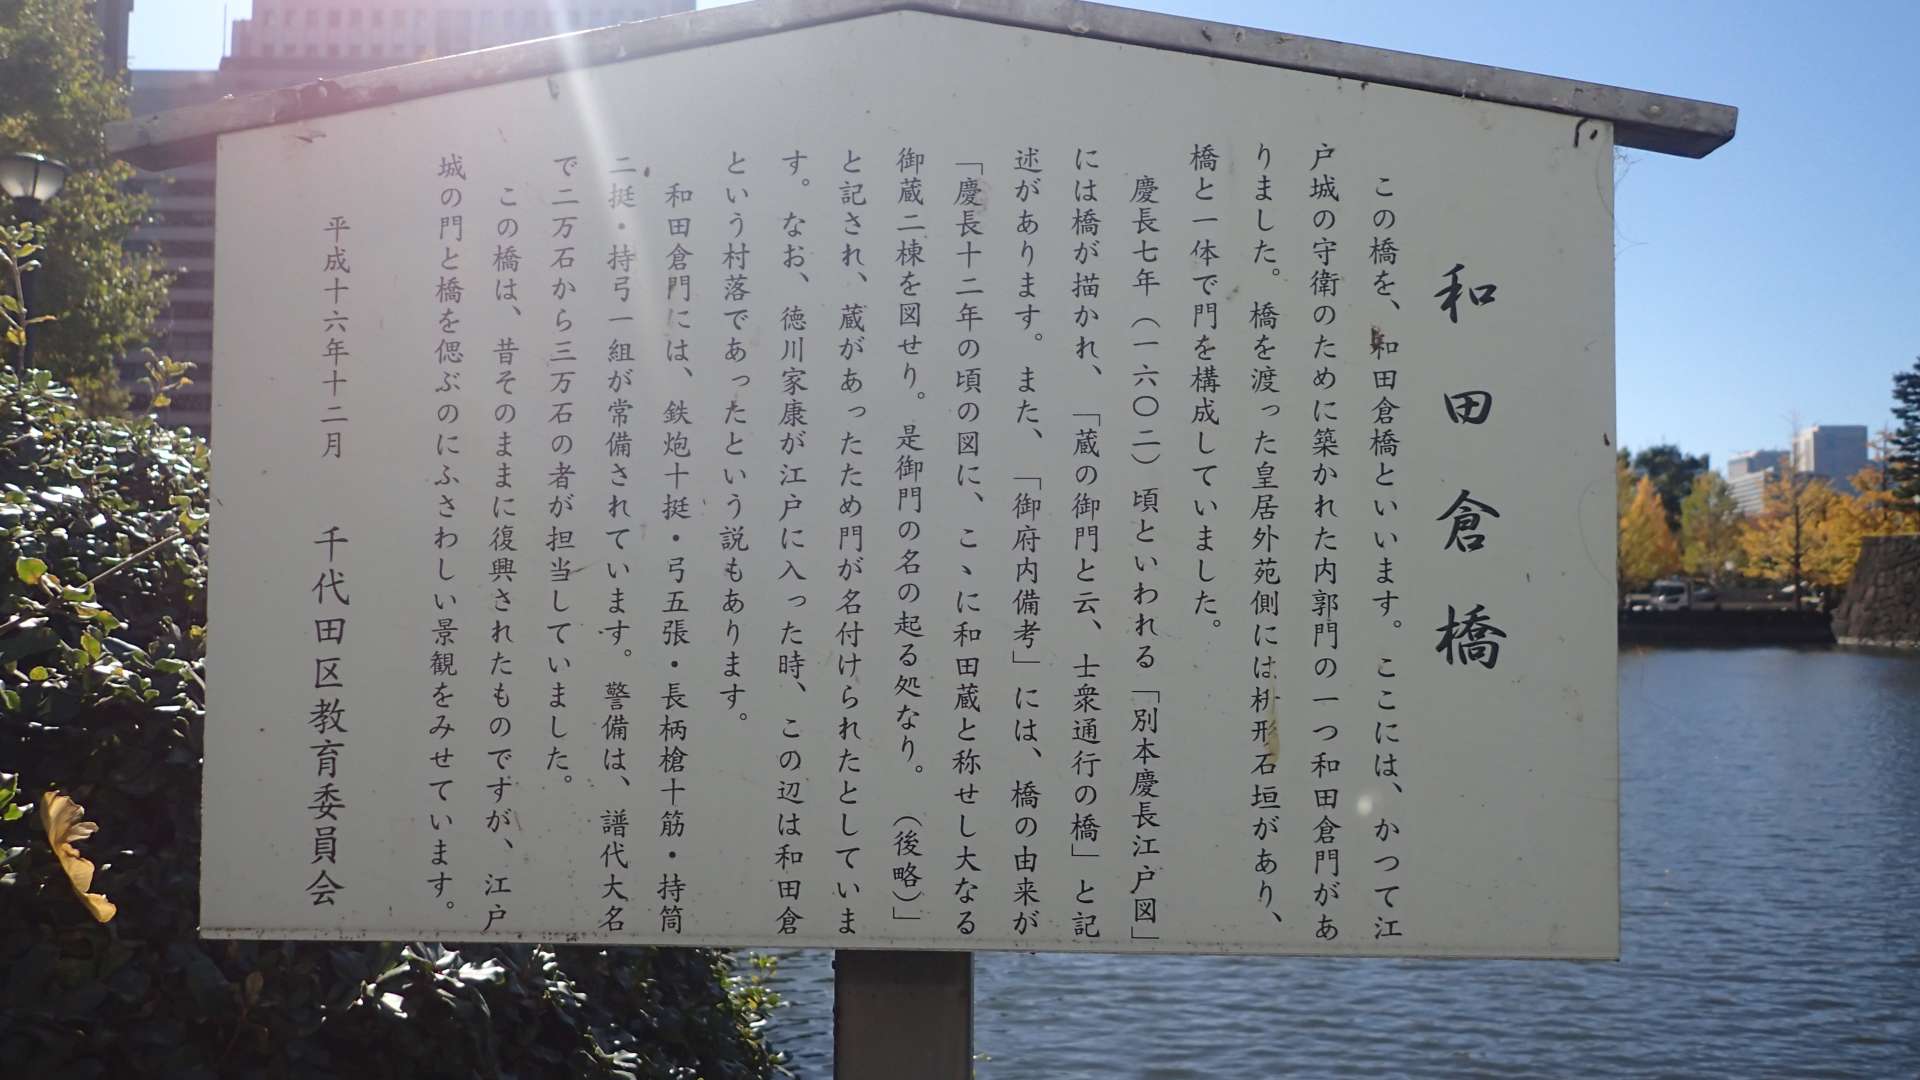 和田倉橋
この橋を、和田倉橋といいます。ここには、かつて江
戸城の守衛のために築かれた内郭門の一つ和田倉門があ
りました。橋を渡った皇居外苑側には枡形石垣があり、
橋と一体で門を構成していました。
慶長七年（一六〇二）頃といわれる「別本慶長江戸図」
には橋が描かれ、「蔵の御門と云、士衆通行の橋」と記
述があります。また、「御府内備考」には、橋の由来が
「慶長十二年の頃の図に、こゝに和田蔵と称せし大なる
御蔵二棟を図せり。是御門の名の起る処なり。（後略）」
と記され、蔵があったため門が名付けられたとしていま
す。なお、徳川家康が江戸に入った時、この辺は和田倉
という村落であったという説もあります。
和田倉門には、鉄炮十挺・弓五張・長柄槍十筋・持筒
二挺・持弓一組が常備されています。警備は、譜代大名
で二万石から三万石の者が担当していました。
この橋は、昔そのままに復興されたものですが、江戸
城の門と橋を偲ぶのにふさわしい景観をみせています。
平成十六年十二月　千代田区教育委員会